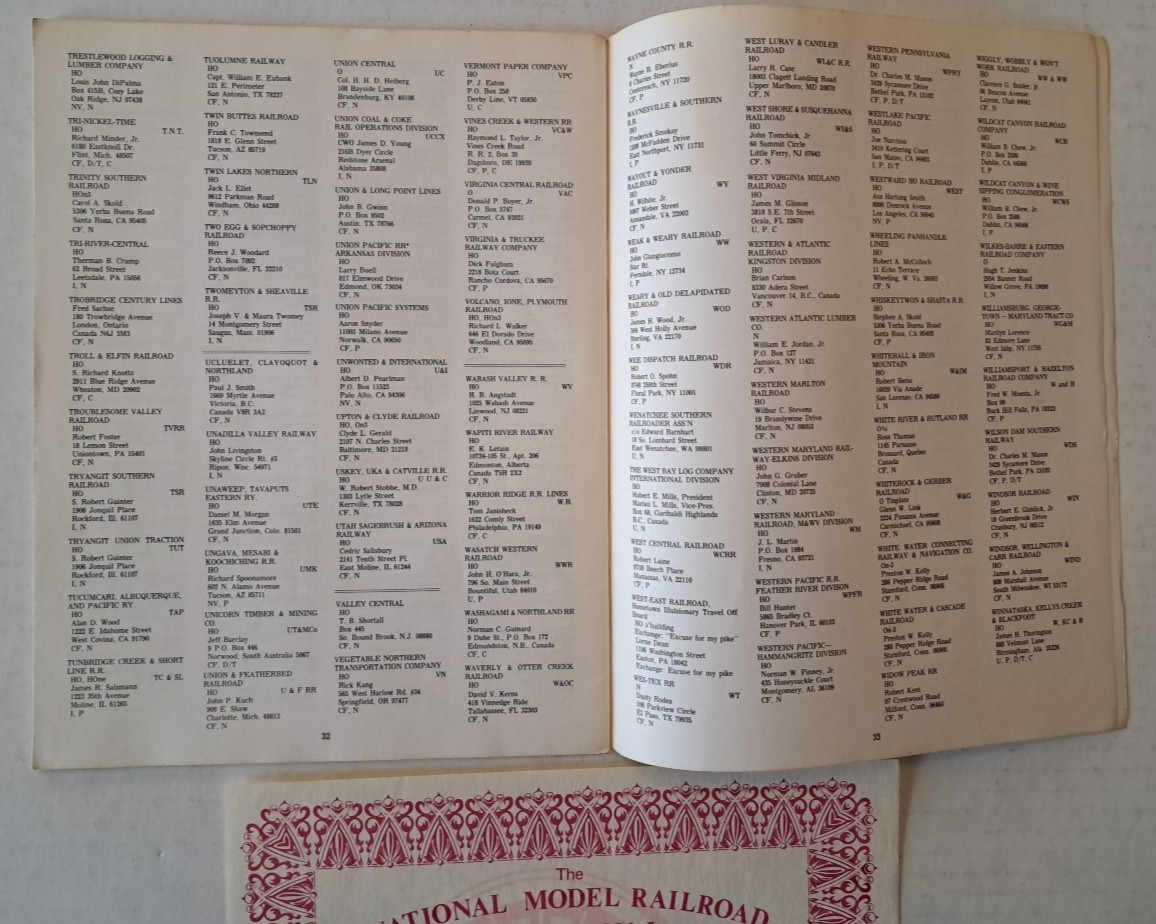 TRESTLEWOOD LOGGING &
LUMBER COMPANY
HO
Louis John DiPalma
Box 415B, Cozy Lake
Oak Ridge, NJ 07438
NV, N
TRI-NICKEL-TIME
HO T.N.T.
Richard Minder, Jr.
6180 Eastknoll Dr.
Flint, Mich. 48507
CF, D/T, C
TRINITY SOUTHERN
RAILROAD
HOn3
Carol A. Skold
5306 Yerba Buena Road
Santa Rosa, CA 95405
CF, N
TRI-RIVER-CENTRAL
HO
Therman B. Crump
62 Broad Street
Leetsdale, PA 15056
I, N
TROBRIDGE CENTURY LINES
Fred Sachse
180 Trowbridge Avenue
London, Ontario
Canada N6J 3M3
CF, N
TROLL & ELFIN RAILROAD
HO
S. Richard Knotts
2911 Blue Ridge Avenue
Wheaton, MD 20902
CF, C
TROUBLESOME VALLEY
RAILROAD
HO TVRR
Robert Foster
18 Lemon Street
Uniontown, PA 15401
CF, N
TRYANGIT SOUTHERN
RAILROAD
HO TSR
S. Robert Gunter
1906 Jonquil Place
Rockford, Ill. 61107
I, N
TRYANGIT UNION TRACTION
HO TUT
S. Robert Gunter
1906 Jonquil Place
Rockford, Ill. 61107
I, N
TUCUMCARI, ALBUQUERQUE,
AND PACIFIC RY.
HO TAP
Alan D. Wood
1222 E. Idahome Street
West Covina, CA 91790
CF, N
TUNBRIDGE CREEK & SHORT
LINE R.R.
HO, HOne TC & SL
James R. Saizmann
1223 35th Avenue
Moline, IL 61265
I, P
TUOLUMNE RAILWAY
HO
Capt. William E. Eubank
121 E. Perimeter
San Antonio, TX 78227
CF, N
TWIN BUTTES RAILROAD
HO
Frank C. Townsend
1818 E. Glenn Street
Tucson, AZ 85719
CF, N
TWIN LAKES NORTHERN
HO TLN
Jack L. Ellet
9612 Parkman Road
Windham, Ohio 44288
CF, N
TWO EGG & SOPCHOPPY
RAILROAD
HO
Reece J. Woodard
P.O. Box 7082
Jacksonville, FL 32210
CF, N
TWOMEYTON & SHEAVILLE
R.R.
HO TSR
Joseph V. & Maura Twomey
14 Montgomery Street
Saugus, Mass. 01906
I, N
UCLUELET, CLAYOQUOT &
NORTHLAND
HO
Paul J. Smith
1669 Myrtle Avenue
Victoria, B.C.
Canada V8R 2A2
CF, N
UNADILLA VALLEY RAILWAY
HO
John Livingston
Skyline Circle Rt. #3
Ripon, Wisc. 54971
I, N
UNAWEEP, TAVAPUTS
EASTERN RY.
HO UTE
Daniel M. Morgan
1635 Elm Avenue
Grand Junction, Colo. 81501
CF, N
UNGAVA, MESABI &
KOOCHICHING R.R.
HO UMK
Richard Spoonamore
602 N. Alamo Avenue
Tucson, AZ 85711
NV, P
UNICORN TIMBER & MINING
CO.
HO UT&MCo
Jeff Barclay
9 P.O. Box 446
Norwood, South Australia 5067
CF, D/T
UNION & FEATHERBED
RAILROAD
HO U & F RR
John P. Kach
909 E. Shaw
Charlotte, Mich. 48813
CF, N
UNION CENTRAL
O UC
Col. H. H. D. Heiberg
108 Bayside Lane
Brandenburg, KY 40108
CF, N
UNION COAL & COKE
RAIL OPERATIONS DIVISION
HO UCCX
CWO James D. Young
216B Dyer Circle
Redstone Arsenal
Alabama 35808
I, N
UNION & LONG POINT LINES
HO
John B. Gwinn
P.O. Box 9502
Austin, TX 78766
CF, N
UNION PACIFIC RR*
ARKANSAS DIVISION
HO
Larry Buell
817 Elmwood Drive
Edmond, OK 73034
CF, N
UNION PACIFIC SYSTEMS
HO
Aaron Snyder
11003 Milano Avenue
Norwalk, CA 90650
CF, P
UNWONTED & INTERNATIONAL
HO U&I
Albert D. Pearlman
P.O. Box 11523
Palo Alto, CA 94306
NV, N
UPTON & CLYDE RAILROAD
HO, On3
Clyde L. Gerald
2107 N. Charles Street
Baltimore, MD 21218
CF, N
USKEY, UKA & CATVILLE R.R.
HO U U & C
W. Robert Stobbe, M.D.
1303 Lytle Street
Kerrville, TX 78028
CF, N
UTAH SAGEBRUSH & ARIZONA
RAILWAY
HO USA
Cedric Salisbury
2141 Tenth Street Pl.
East Moline, IL 61244
CF, N
VALLEY CENTRAL
HO
T. B. Shortall
Box 445
So. Bound Brook, N.J. 08880
CF, N
VEGETABLE NORTHERN
TRANSPORTATION COMPANY
HO VN
Rick Kang
565 West Harlow Rd. #34
Springfield, OR 97477
CF, N
VERMONT PAPER COMPANY
HO VPC
P. J. Eaton
P.O. Box 258
Derby Line, VT 05830
U, C
VINES CREEK & WESTERN RR
HO VC&W
Raymond L. Taylor, Jr.
Vines Creek Road
R. R. 2, Box 39
Dagsboro, DE 19939
CF, P, C
VIRGINIA CENTRAL RAILROAD
O VAC
Donald P. Boyer, Jr.
P.O. Box 5747
Carmel, CA 93921
CF, N
VIRGINIA & TRUCKEE
RAILWAY COMPANY
HO
Dick Fulgham
2218 Bota Court
Rancho Cordova, CA 95670
CF, P
VOLCANO, IONE, PLYMOUTH
RAILROAD
HO, HOn3
Richard L. Walker
646 El Dorado Drive
Woodland, CA 95695
CF, N
WABASH VALLEY R. R.
HO WV
H. B. Angstadt
1025 Wabash Avenue
Linwood, NJ 08221
CF, N
WAPITI RIVER RAILWAY
HO
E. K. Letain
10724-105 St., Apt. 206
Edmonton, Alberta
Canada T5H 2X2
CF, N
WARRIOR RIDGE R.R. LINES
HO W.R
Tom Janisheck
1622 Comly Street
Philadelphia, PA 19149
CF, C
WASATCH WESTERN
RAILROAD
HO WWR
John H. O'Hara, Jr.
796 So. Main Street
Bountiful, Utah 84010
U, P
WASHAGAMI & NORTHLAND RR
HO
Norman C. Guinard
9 Dube St., P.O. Box 172
Edmundston, N.B., Canada
CF, C
WAVERLY & OTTER CREEK
RAILROAD
HO W&OC
David V. Kerns
418 Vinnedge Ride
Tallahassee, FL 32303
CF, N
32
WAYNE COUNTY R.R.
N
Wayne R. Eberius
Charles Street
Centereach, NY 11720
CF, P
WAYNESVILLE & SOUTHERN
R.R.
HO
Frederick Smokay
McFadden Drive
East Northport, NY 11731
I, P
WAYOUT & YONDER
RAILROAD WY
HO
H. Wibile, Jr.
Weber Street
Annandale, VA 22003
CF, N
WEAK & WEARY RAILROAD
HO WW
John Giangiacomo
Star Rt.
Ferndale, NY 12734
I, P
WEARY & OLD DELAPIDATED
RAILROAD
HO WOD
James H. Wood, Jr.
304 West Holly Avenue
Sterling, VA 22170
I, N
WEE DISPATCH RAILROAD
HO WDR
Robert O. Spohn
8746 259th Street
Floral Park, NY 11001
CF, P
WENATCHEE SOUTHERN
RAILROADER ASS'N
c/o Edward Barnhart
18 So. Lombard Street
East Wenatchee, WA 98801
U, N
THE WEST BAY LOG COMPANY
INTERNATIONAL DIVISION
HO
Robert E. Mills, President
Marian L. Mills, Vice-Pres.
Box 68, Garibaldi Highlands
B.C., Canada
U, N
WEST CENTRAL RAILROAD
HO WCRR
Robert Laine
8738 Beech Place
Manassas, VA 22110
CF, P
WEST-EAST RAILROAD,
Hometown Illusionary Travel Off
Board
HO a'building
Exchange: "Excuse for my pike"
Lorne Dean
1106 Washington Street
Easton, PA 18042
Exchange: Excuse for my pike
WES-TEX RR
N WT
Dusty Rodes
106 Parkview Circle
El Paso, TX 79935
CF, N
WEST LURAY & CANDLER
RAILROAD
HO WL&C R.R.
Larry R. Case
18003 Clagett Landing Road
Upper Marlboro, MD 20870
CF, N
WEST SHORE & SUSQUEHANNA
RAILROAD
HO WS&S
John Tomchick, Jr.
60 Summit Circle
Little Ferry, NJ 07643
CF, N
WEST VIRGINIA MIDLAND
RAILROAD
HO
James M. Glimon
3818 S.E. 7th Street
Ocala, FL 32670
U, P, C
WESTERN & ATLANTIC
RAILROAD
KINGSTON DIVISION
HO
Brian Carlson
8330 Adera Street
Vancouver 14, B.C., Canada
CF, N
WESTERN ATLANTIC LUMBER
CO.
N
William E. Jordan, Jr.
P.O. Box 127
Jamaica, NY 11431
CF, N
WESTERN MARLTON
RAILROAD
HO
Wilbur C. Stevens
19 Brandywine Drive
Marlton, NJ 08053
CF, N
WESTERN MARYLAND RAIL-
WAY-ELKINS DIVISION
HO
John G. Gruber
7908 Colonial Lane
Clinton, MD 20735
CF, N
WESTERN MARYLAND
RAILROAD, M&WV DIVISION
HO WM
J. L. Martin
P.O. Box 1984
Fresno, CA 93721
I, N
WESTERN PACIFIC R.R.
FEATHER RIVER DIVISION
HO WPFR
Bill Hunter
5865 Bradley Ct.
Hanover Park, IL 60103
CF, P
WESTERN PACIFIC—
HAMMANGRITZ DIVISION
HO
Norman W. Pinney, Jr.
435 Honeysuckle Court
Montgomery, AL 36109
CF, N
WESTERN PENNSYLVANIA
RAILWAY
HO WPRY
Dr. Charles M. Mason
3429 Sycamore Drive
Bethel Park, PA 15102
CF, P, D/T
WESTLAKE PACIFIC
RAILROAD
HO
Joe Narciso
3410 Kettering Court
San Mateo, CA 94403
I, P, D/T
WESTWARD HO RAILROAD
HO WEST
Asa Hartung Smith
Denrock Avenue
Los Angeles, CA
NV, P
WHEELING PANHANDLE
LINES
HO
Robert A. McColloch
11 Echo Terrace
Wheeling, W. Va. 26003
CF, N
WHISKEYTWON & SHASTA R.R.
HO
Stephen A. Skold
5306 Yerba Buena Road
Santa Rosa, CA 95405
CF, P
WHITEHALL & IRON
MOUNTAIN
HO W&IM
Robert Bario
16020 Via Anade
San Lorenzo, CA 94580
I, N
WHITE RIVER & RUTLAND RR
O¼
Ross Thomas
1145 Parnasse
Brossard, Quebec
Canada
CF, N
WHITEROCK & GERBER
RAILROAD
O Tinplate W&G
Glenn W. Link
2224 Panama Avenue
Carmichael, CA 95608
CF, N
WHITE WATER CONNECTING
RAILWAY & NAVIGATION CO.
On-3
Preston W. Kelly
288 Pepper Ridge Road
Stamford, Conn. 06905
CF, N
WHITE WATER & CASCADE
RAILROAD
On-3
Preston W. Kelly
288 Pepper Ridge Road
Stamford, Conn. 06905
CF, N
WIDOW PEAK RR
HO
Robert Kent
97 Crestwood Road
Milford, Conn. 06460
CF, N
WIGGLY, WOBBLY & WON'T
WORK RAILROAD
HO WW & WW
Clarence G. Snider, Jr.
86 Beacon Avenue
Layton, Utah 84041
CF, N
WILDCAT CANYON RAILROAD
COMPANY
HO WCR
William B. Chew, Jr.
P.O. Box 2586
Dublin, CA 94566
I, P
WILDCAT CANYON & WINE
SIPPING CONGLOMERATION
HO WCWS
William B. Chew, Jr.
P.O. Box 2586
Dublin, CA 94566
I, P
WILKES-BARRE & EASTERN
RAILROAD COMPANY
O
Hugh T. Jenkins
2954 Banner Road
Willow Grove, PA 19090
I, N
WILLIAMSBURG, GEORGE-
TOWN – MARYLAND TRACT CO
HO WG&M
Marilyn Lorence
82 Edmore Lane
West Islip, NY 11795
CF, N
WILLIAMSPORT & HAZELTON
RAILROAD COMPANY
HO W and H
Fred W. Moentz, Jr.
Box 99
Buck Hill Falls, PA 18323
CF, P
WILSON DAM SOUTHERN
RAILWAY
HO WDS
Dr. Charles M. Mason
3429 Sycamore Drive
Bethel Park, PA 15102
CF, P, D/T
WINDSOR RAILROAD
HO WIN
Herbert E. Gishlick, Jr.
18 Greenbrook Drive
Cranbury, NJ 08512
CF, N
WINDSOR, WELLINGTON &
CARR RAILROAD
HO WIND
James A. Johnson
809 Marshall Avenue
South Milwaukee, WI 53172
CF, N
WINNATASKA, KELLYS CREEK
& BLACKFOOT
HO W, KC & B
James H. Thorington
880 Velmont Lane
Birmingham, Ala. 35226
U, P, D/T, C
33
The
NATIONAL MODEL RAILROAD